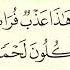 هَٰذَا عَذْبٌ فُرَا
كُلُونَ لَحْمًا